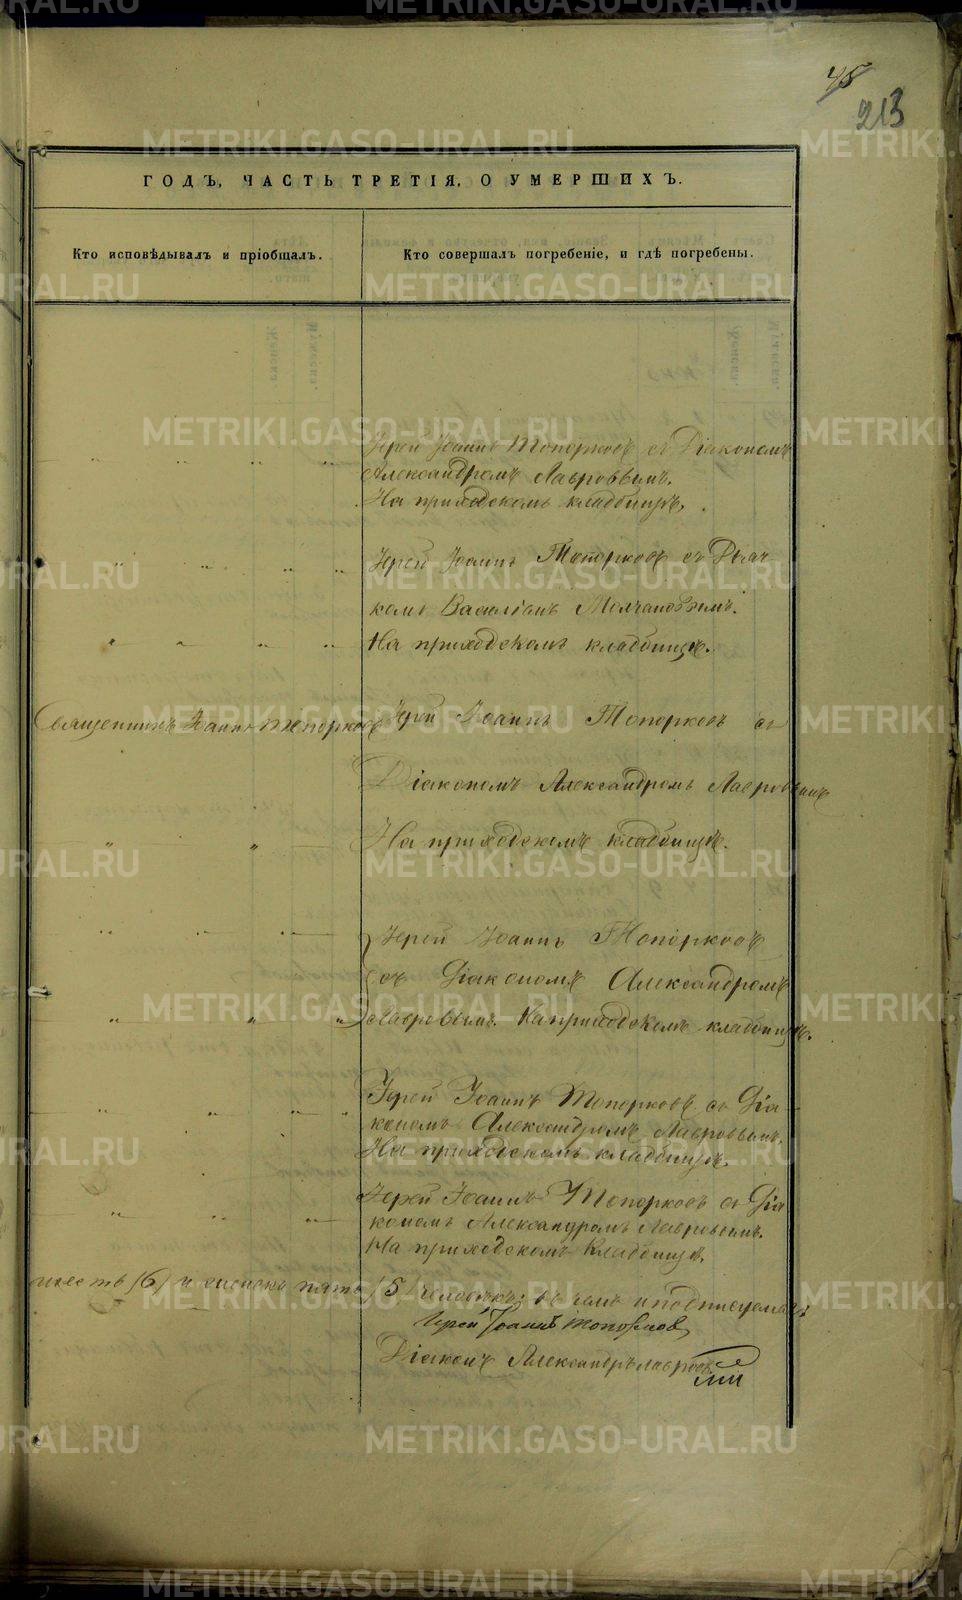 45
213
ГОДЪ, ЧАСТЬ ТРЕТІЯ, О УМЕРШИХЪ.
Кто исповѣдывалъ и пріобщалъ.
Кто совершалъ погребеніе, и гдѣ погребены.
Іерей Іоаннъ Топорковъ съ Діакономъ
Александромъ Лавровымъ.
На приходскомъ кладбищѣ.
Іерей Іоаннъ Топорковъ съ Дьяч
комъ Молчановымъ.
На приходскомъ кладбищѣ.
Священникъ Іоаннъ Топорковъ
Іерей Іоаннъ Топорковъ съ
Діакономъ Александромъ Лавровымъ
На приходскомъ кладбищѣ.
Іерей Іоаннъ Топорковъ
съ Діакономъ Александромъ
Лавровымъ. На приходскомъ кладбищѣ.
Іерей Іоаннъ Топорковъ съ Діа
кономъ Александромъ Лавровымъ.
На приходскомъ кладбищѣ.
Іерей Іоаннъ Топорковъ съ Діа
кономъ Александромъ Лавровымъ.
На приходскомъ Кладбищѣ.
шесть (6) и женска пять (5) человѣкъ; въ чемъ и подписуемся:
Іерей Іоаннъ Топорковъ
Діаконъ Александръ Лавровъ
METRIKI.GASO-URAL.RU